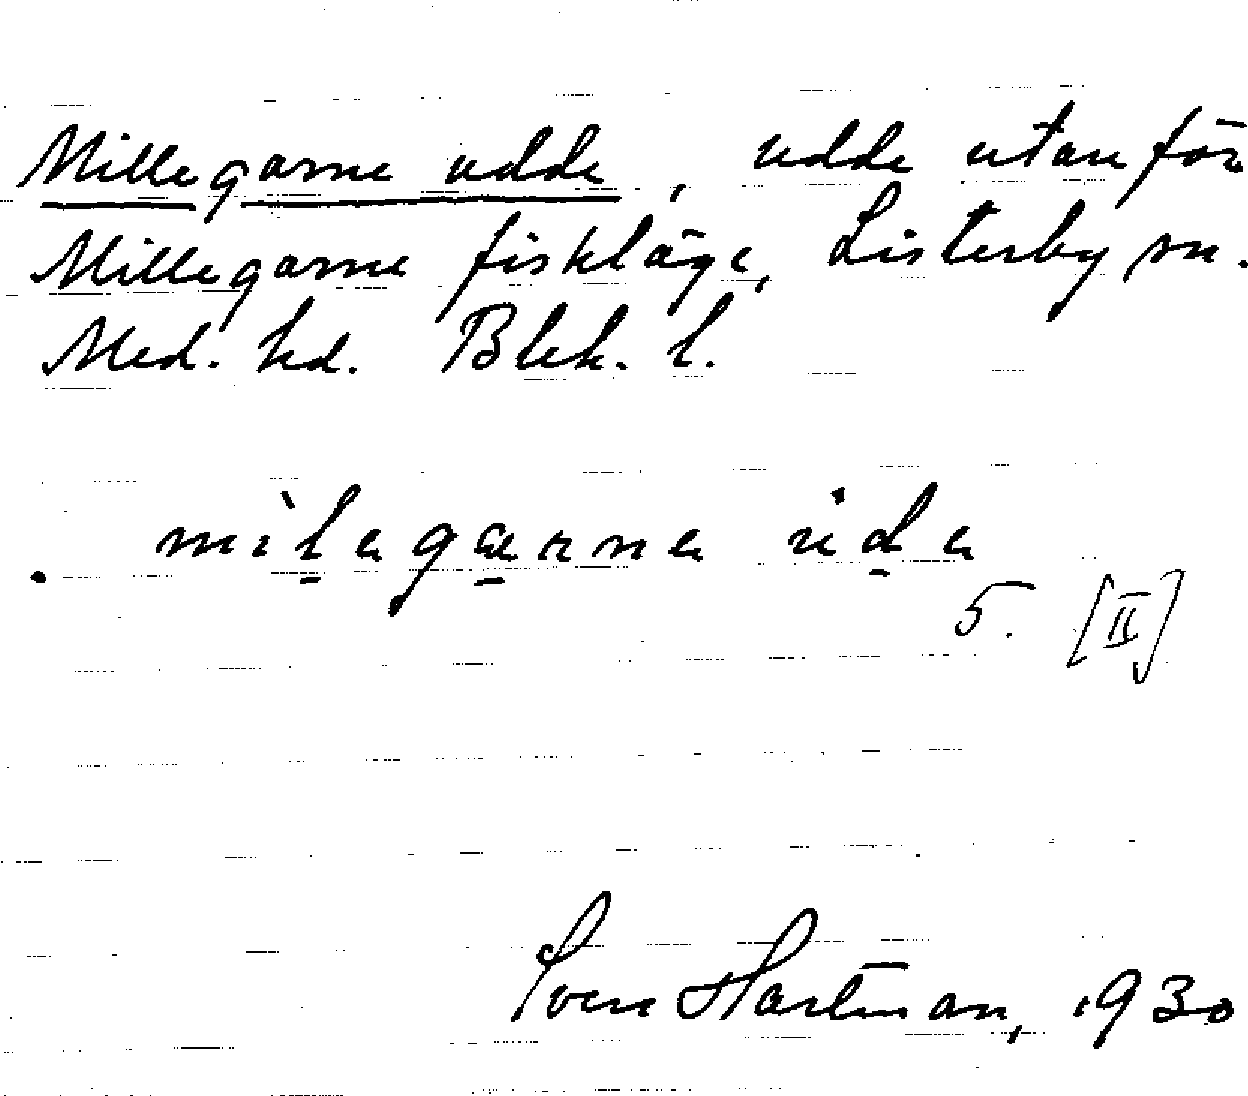 Millegarne udde, udde utanför
Millegarne fiskläge, Listerby sn.
Med. hd. Blek. l.
mìl̠agæ̠rna ùd̠a
5. [II]
Sven Hartman, 1930